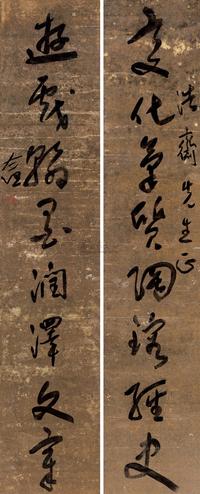 變化氣質陶鎔經史
浩齋先生正
遊戲翰墨潤澤文章